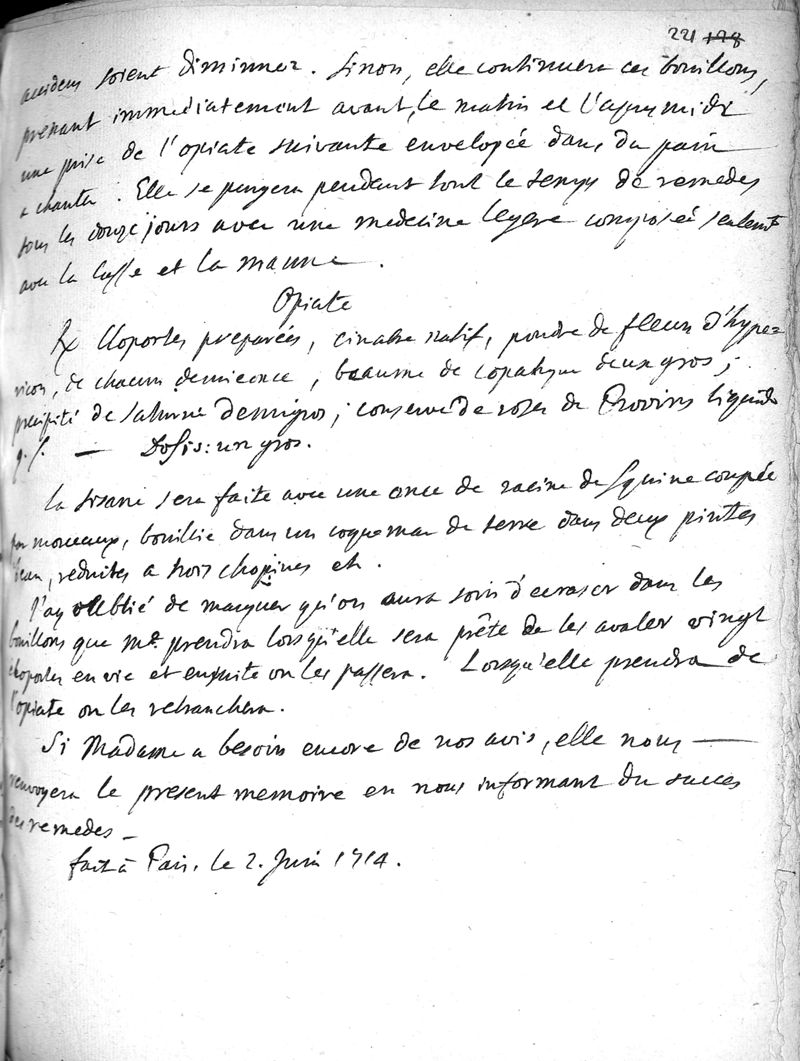 221 178
accidens soient diminuez. Sinon, elle continuera ces bouillons,
prenant immediatement avant, le matin et l'apresmidi
une prise de l'opiate suivante envelopée dans du pain
a chanter. Elle se purgera pendant tout le temps de remedes
tous les douze jours avec une medecine legere composée seulemt
avec la casse et la manne.
Opiate
Rx Cloportes preparées, cinabre natif, poudre de fleurs d'hype=
ricon, de chacun demieonce, beaume de copahu deux gros;
precipité de saturne demigros; conserve de roses de Provins liquide
q. s. — Dosis: un gros.
La tisane sera faite avec une once de racine de squine coupée
par morceaux, bouillie dans un coquemar de terre dans deux pintes
d'eau, reduites a trois chopines etc.
J'ay oublié de marquer qu'on aura soin d'ecraser dans les
bouillons que Me. prendra lorsqu'elle sera prête de les avaler vingt
cloportes en vie et ensuite on les passera. Lorsqu'elle prendra de
l'opiate on les retranchera.
Si Madame a besoin encore de nos avis, elle nous —
renvoyera le present memoire en nous informant du succes
des remedes —
fait à Paris. le 2. Juin 1714.